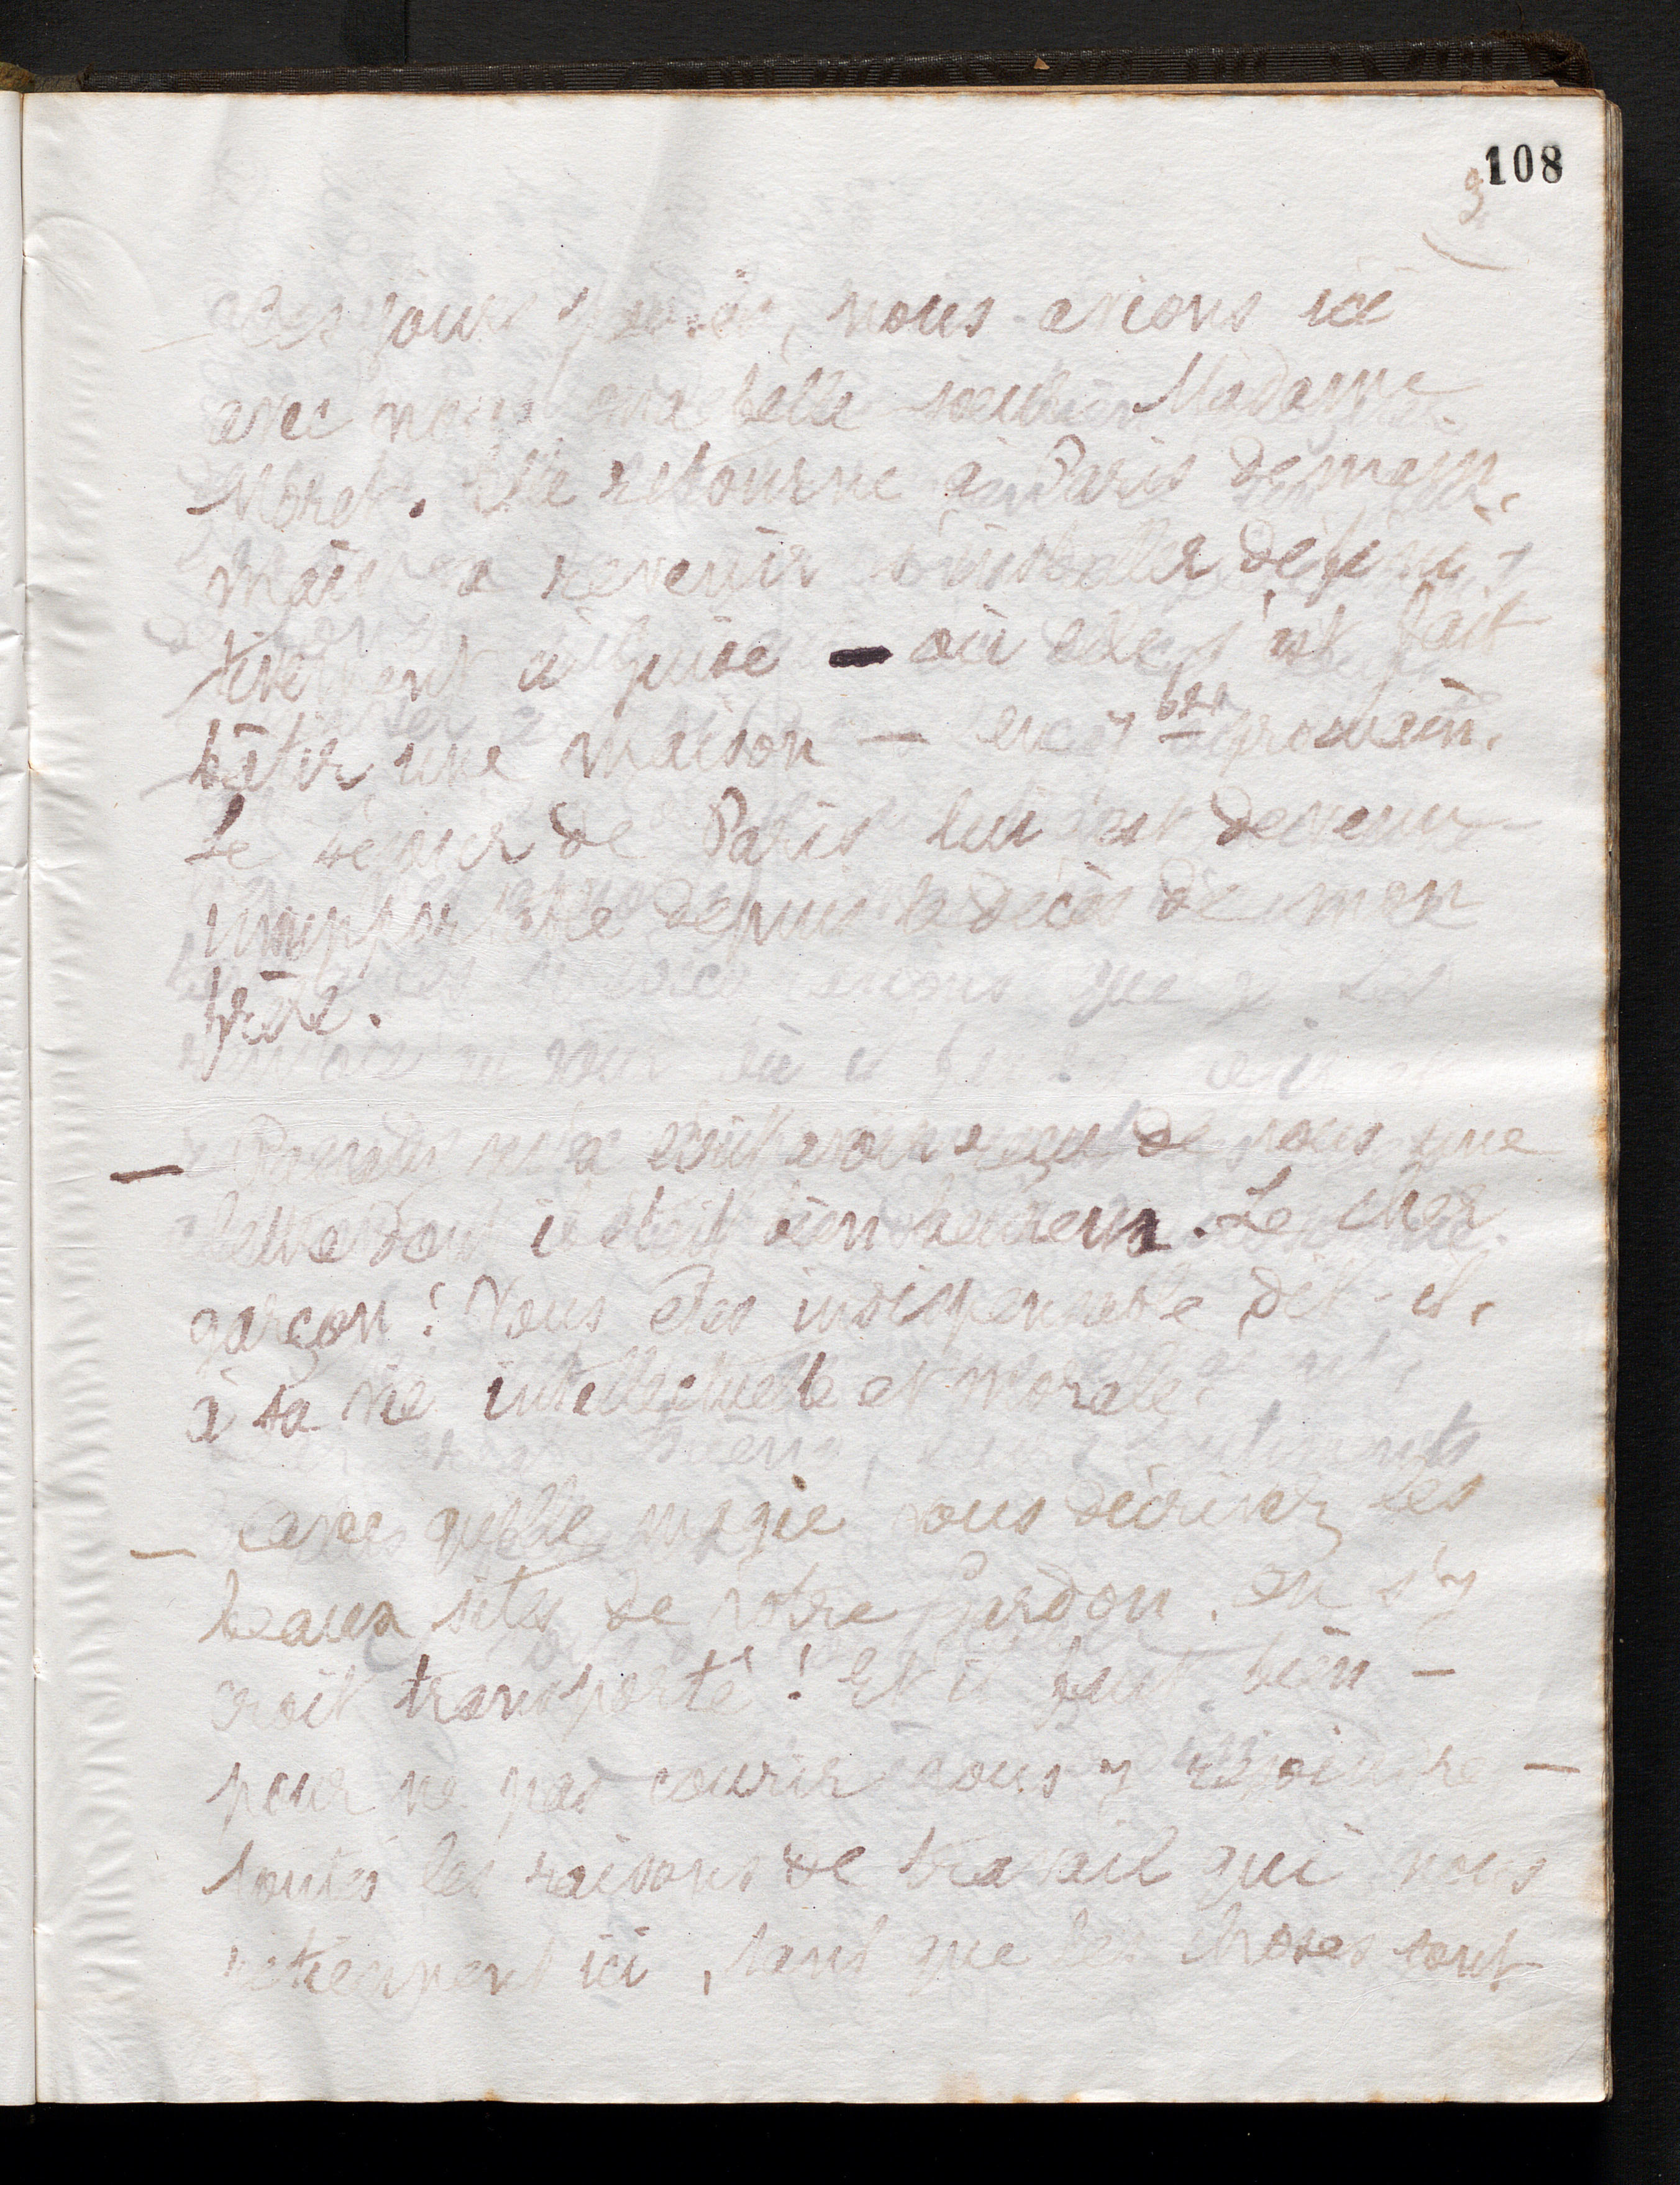 108
3
Ces jours nous avions ici
avec nous ma belle soeur Madame
Moret. Elle retourne à Paris demain,
mais va revenir s'installer défini-
tivement à Guise — où elle s'est fait
bâtir une maison — en 7bre prochain.
Le séjour de Paris lui est devenu
insupportable depuis le décès de mon
frère.
— m'a écrit avoir reçu de vous une
lettre dont il était bien heureux. Le cher
garçon ! Vous êtes indispensable, dit-il,
à sa vie intellectuelle et morale.
— avec quelle magie vous décrivez les
beaux sites de votre Gardon. On s'y
croit transporté ! Et il faut bien —
pour ne pas courir vous y rejoindre —
toutes les raisons de travail qui nous
retiennent ici, tant que les choses sont